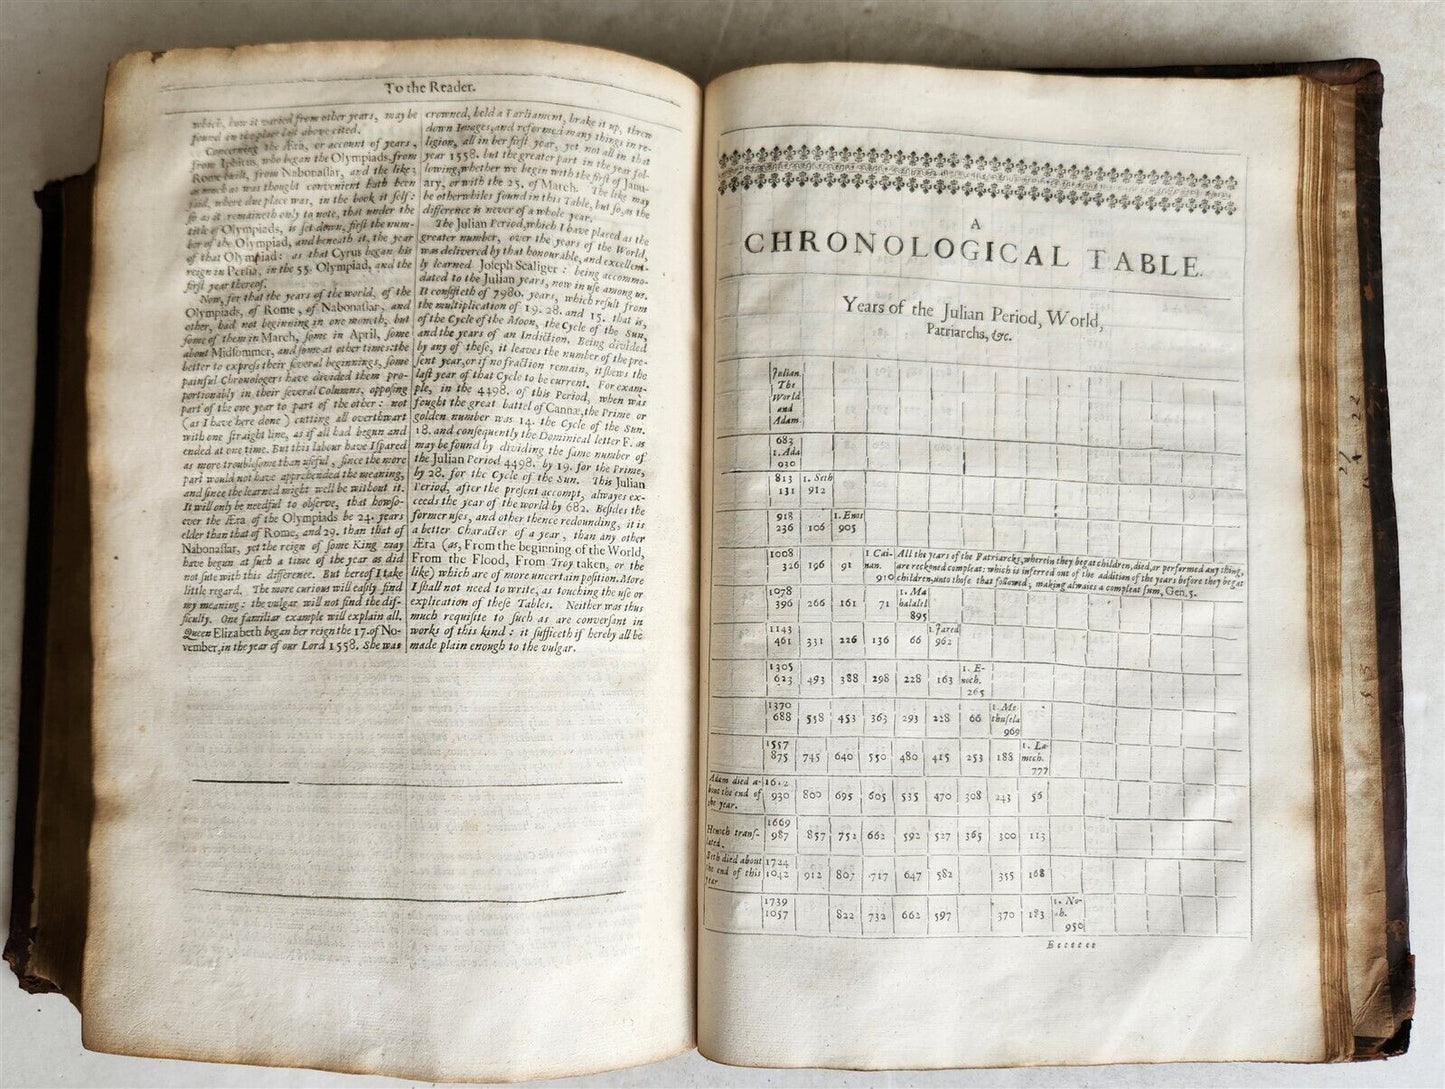 To the Reader.
which, how it varied from other years, may be
found in the place last above cited.
Concerning the Æra, or account of years,
from Iphitus, who began the Olympiads, from
Rome built, from Nabonassar, and the like;
as much as was thought convenient hath been
said, where due place was, in the book it self:
so as it remaineth only to note, that under the
title of Olympiads, is set down, first the num-
ber of the Olympiad, and beneath it, the year
of that Olympiad: as that Cyrus began his
reign in Persia, in the 55. Olympiad, and the
first year thereof.
Now, for that the years of the world, of the
Olympiads, of Rome, of Nabonassar, and
other, had not beginning in one moneth, but
some of them in March, some in April, some
about Midsommer, and some at other times: the
better to express their several beginnings, some
painful Chronologers have divided them pro-
portionably in their several Columns, opposing
part of the one year to part of the other: not
(as I have here done) cutting all overthwart
with one straight line, as if all had begun and
ended at one time. But this labour have I spared
as more troublesome than useful, since the more
part would not have apprehended the meaning,
and since the learned might well be without it.
It will only be needful to observe, that howso-
ever the Æra of the Olympiads be 24. years
elder than that of Rome, and 29. than that of
Nabonassar, yet the reign of some King may
have begun at such a time of the year as did
not sute with this difference. But hereof I take
little regard. The more curious will easily find
my meaning: the vulgar will not find the dif-
ficulty. One familiar example will explain all.
Queen Elizabeth began her reign the 17. of No-
vember, in the year of our Lord 1558. She was
crowned, held a Parliament, brake it up, threw
down Images, and reformed many things in re-
ligion, all in her first year, yet not all in that
year 1558. but the greater part in the year fol-
lowing, whether we begin with the first of Janu-
ary, or with the 25. of March. The like may
be otherwhiles found in this Table, but so, as the
difference is never of a whole year.
The Julian Period, which I have placed as the
greater number, over the years of the World,
was delivered by that honourable, and excellent-
ly learned Joseph Scaliger: being accommo-
dated to the Julian years, now in use among us.
It consisteth of 7980. years, which result from
the multiplication of 19. 28. and 15. that is,
of the Cycle of the Moon, the Cycle of the Sun,
and the years of an Indiction. Being divided
by any of these, it leaves the number of the pre-
sent year, or if no fraction remain, it shews the
last year of that Cycle to be current. For exam-
ple, in the 4498. of this Period, when was
fought the great battel of Cannæ, the Prime or
golden number was 14. the Cycle of the Sun.
18. and consequently the Dominical letter F. as
may be found by dividing the same number of
the Julian Period 4498. by 19. for the Prime,
by 28. for the Cycle of the Sun. This Julian
Period, after the present accompt, alwayes ex-
ceeds the year of the world by 682. Besides the
former uses, and other thence redounding, it is
a better Character of a year, than any other
Æra (as, From the beginning of the World,
From the Flood, From Troy taken, or the
like) which are of more uncertain position. More
I shall not need to write, as touching the use or
explication of these Tables. Neither was thus
much requisite to such as are conversant in
works of this kind: it sufficeth if hereby all be
made plain enough to the vulgar.
A
CHRONOLOGICAL TABLE.
Years of the Julian Period, World,
Patriarchs, &c.
Julian.
The
World
and
Adam.
683
1. Ada
930
813 1. Seth
131 912
918 1. Enos
236 106 905
1008 1 Cai- All the years of the Patriarchs, wherein they begat children, died, or performed any thing,
326 196 91 nan. are reckoned compleat: which is inferred out of the addition of the years before they begat
910 children, unto those that followed, making alwaies a compleat sum, Gen. 5.
1078 1. Ma
396 266 161 71 halalel
895
1143 1. Jared
461 331 226 136 66 962
1305 1. E-
623 493 388 298 228 163 noch.
265
1370 1. Me
688 558 453 363 293 228 66 thusela
969
1557 1. La-
875 745 640 550 480 415 253 188 mech.
777
Adam died a- 1612
bout the end of 930 800 695 605 535 470 308 243 56
the year.
1669
Henoch trans- 987 857 752 662 592 527 365 300 113
lated.
Seth died about 1724
the end of this 1042 912 807 717 647 582 355 168
year
1739 1. No-
1057 822 732 662 597 370 183 ah.
950